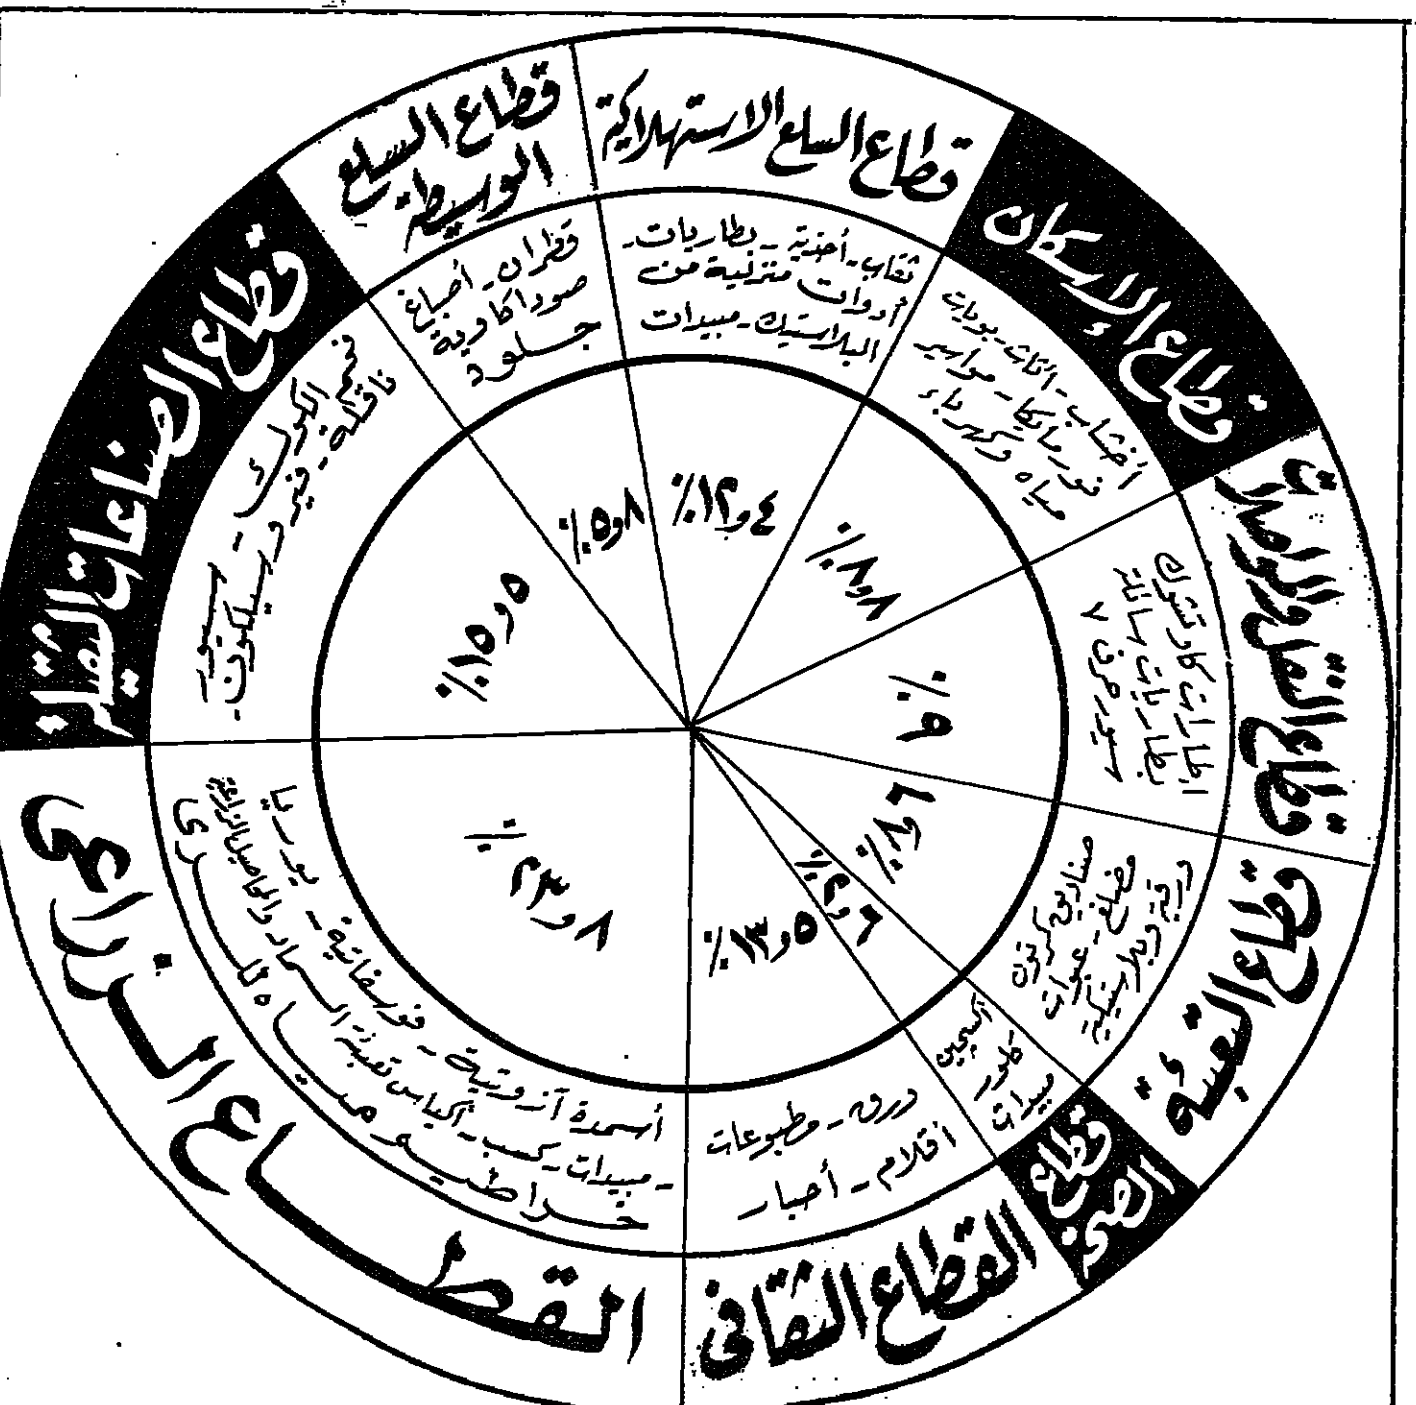 قطاع السلع الاستهلاكية
ثقاب - أحذية - بطاريات -
أدوات منزلية من
البلاستيك - مبيدات
٤و١٢٪
قطاع الإسكان
أخشاب - أثاث - بويات
فورمايكا - مواسير
مياه وكهرباء
٨و٨٪
قطاع النقل والمواصلات
اطارات كاوتشوك
بطاريات سائلة
حرف ٧
٩٪
قطاع التعبئة
صناديق كرتون
مضلع - عبوات
ورقية وبلاستيكية
٦و٨٪
قطاع الصحة
اكسجين
كلور
مبيدات
٦و٢٪
القطاع الثقافى
ورق - مطبوعات
أقلام - أحبار
٥و١٣٪
القطاع الزراعى
أسمدة آزوتية - فوسفاتية - يوريا
- مبيدات - كسب - أكياس تعبئة السماد والمحاصيل الزراعية
خراطيم مياه للرى
٨و٢٣٪
قطاع الصناعات الثقيلة
فحم الكوك - سيور
ناقلة - فيروسيليكون -
٥و١٥٪
قطاع السلع
الوسيطة
قطران - أصباغ
صودا كاوية
جلود
٨و٥٪